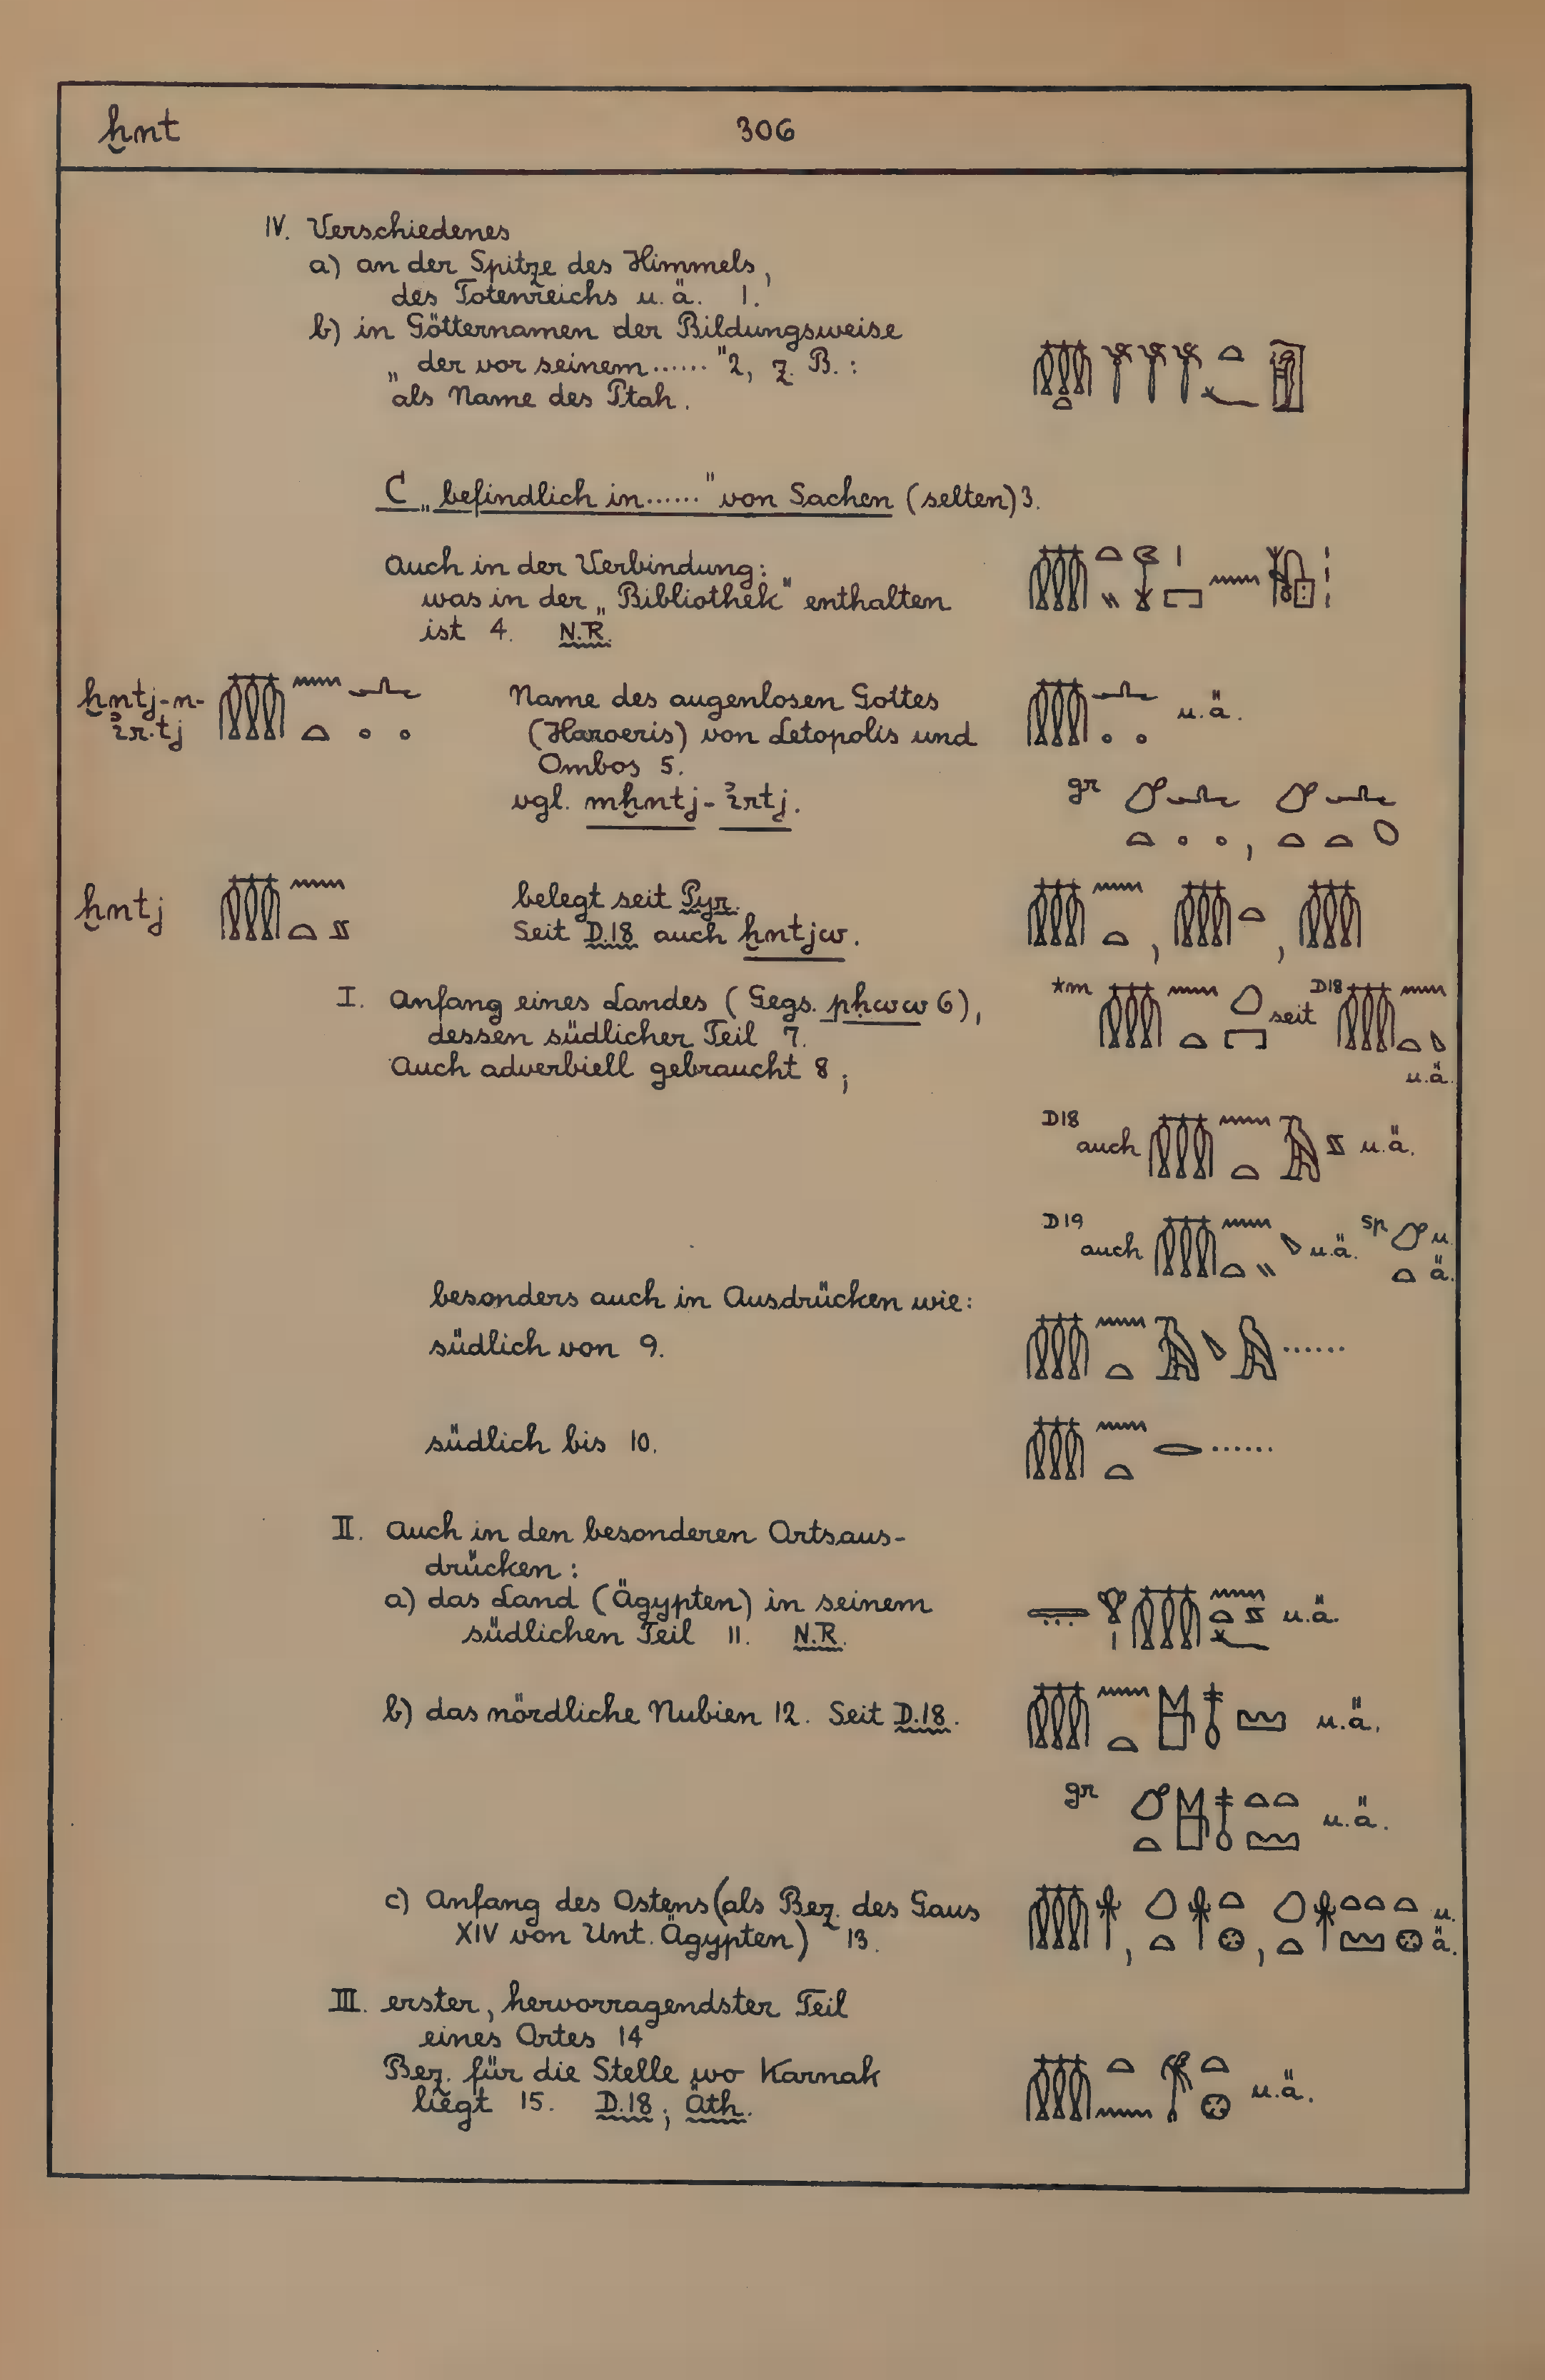 ḫnt 306
IV. Verschiedenes
a) an der Spitze des Himmels,
des Totenreichs u. ä. 1.
b) in Götternamen der Bildungsweise
„der vor seinem ......" 2, z. B.:
als Name des Ptah.
C „befindlich in ......" von Sachen (selten) 3.
Auch in der Verbindung:
was in der „Bibliothek" enthalten
ist 4. N.R.
ḫntj-n-
ỉr.tj
Name des augenlosen Gottes
(Haroeris) von Letopolis und
Ombos 5.
vgl. mḫntj-ỉrtj.
u. ä.
gr
ḫntj
belegt seit Pyr.
Seit D.18 auch ḫntjw.
I. Anfang eines Landes (Gegs. pḥww 6),
dessen südlicher Teil 7.
Auch adverbiell gebraucht 8;
*m seit D18
u. ä.
D18
auch u. ä.
D19
auch u. ä. Sp u.
ä.
besonders auch in Ausdrücken wie:
südlich von 9. ......
südlich bis 10. ......
II. Auch in den besonderen Ortsaus-
drücken:
a) das Land (Ägypten) in seinem
südlichen Teil 11. N.R. u. ä.
b) das nördliche Nubien 12. Seit D.18. u. ä.
gr u. ä.
c) Anfang des Ostens (als Bez. des Gaus
XIV von Unt. Ägypten) 13. u.
ä.
III. erster, hervorragendster Teil
eines Ortes 14
Bez. für die Stelle wo Karnak
liegt 15. D.18; Äth. u. ä.